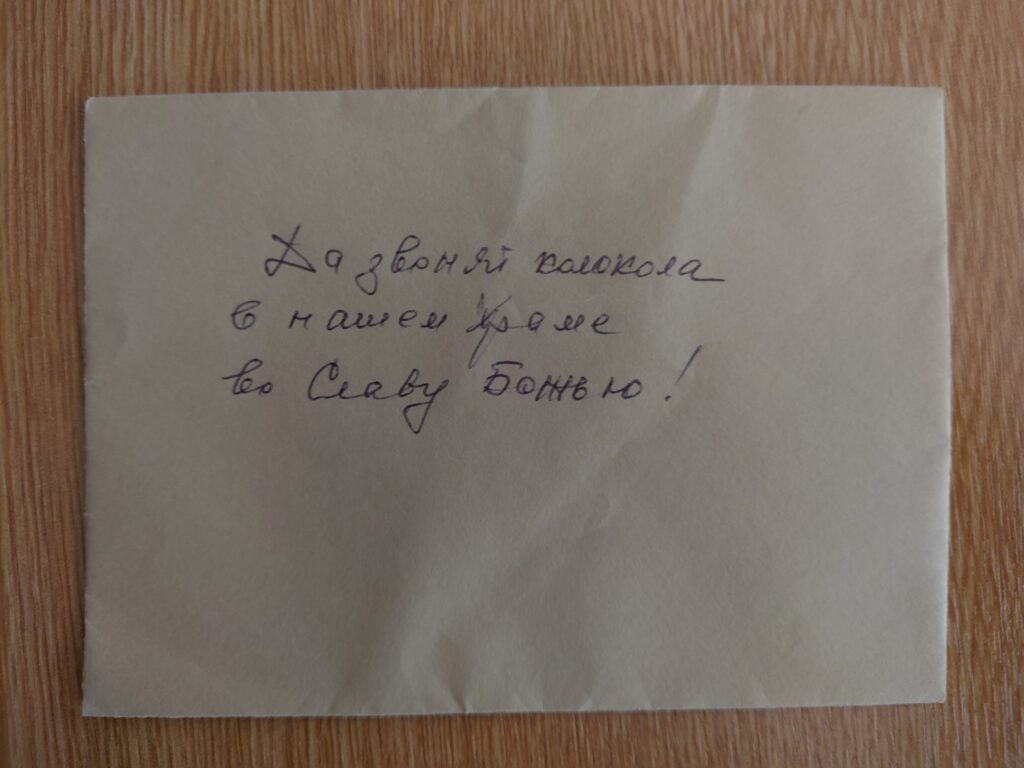 Да звонят колокола
в нашем Храме
во Славу Божью!